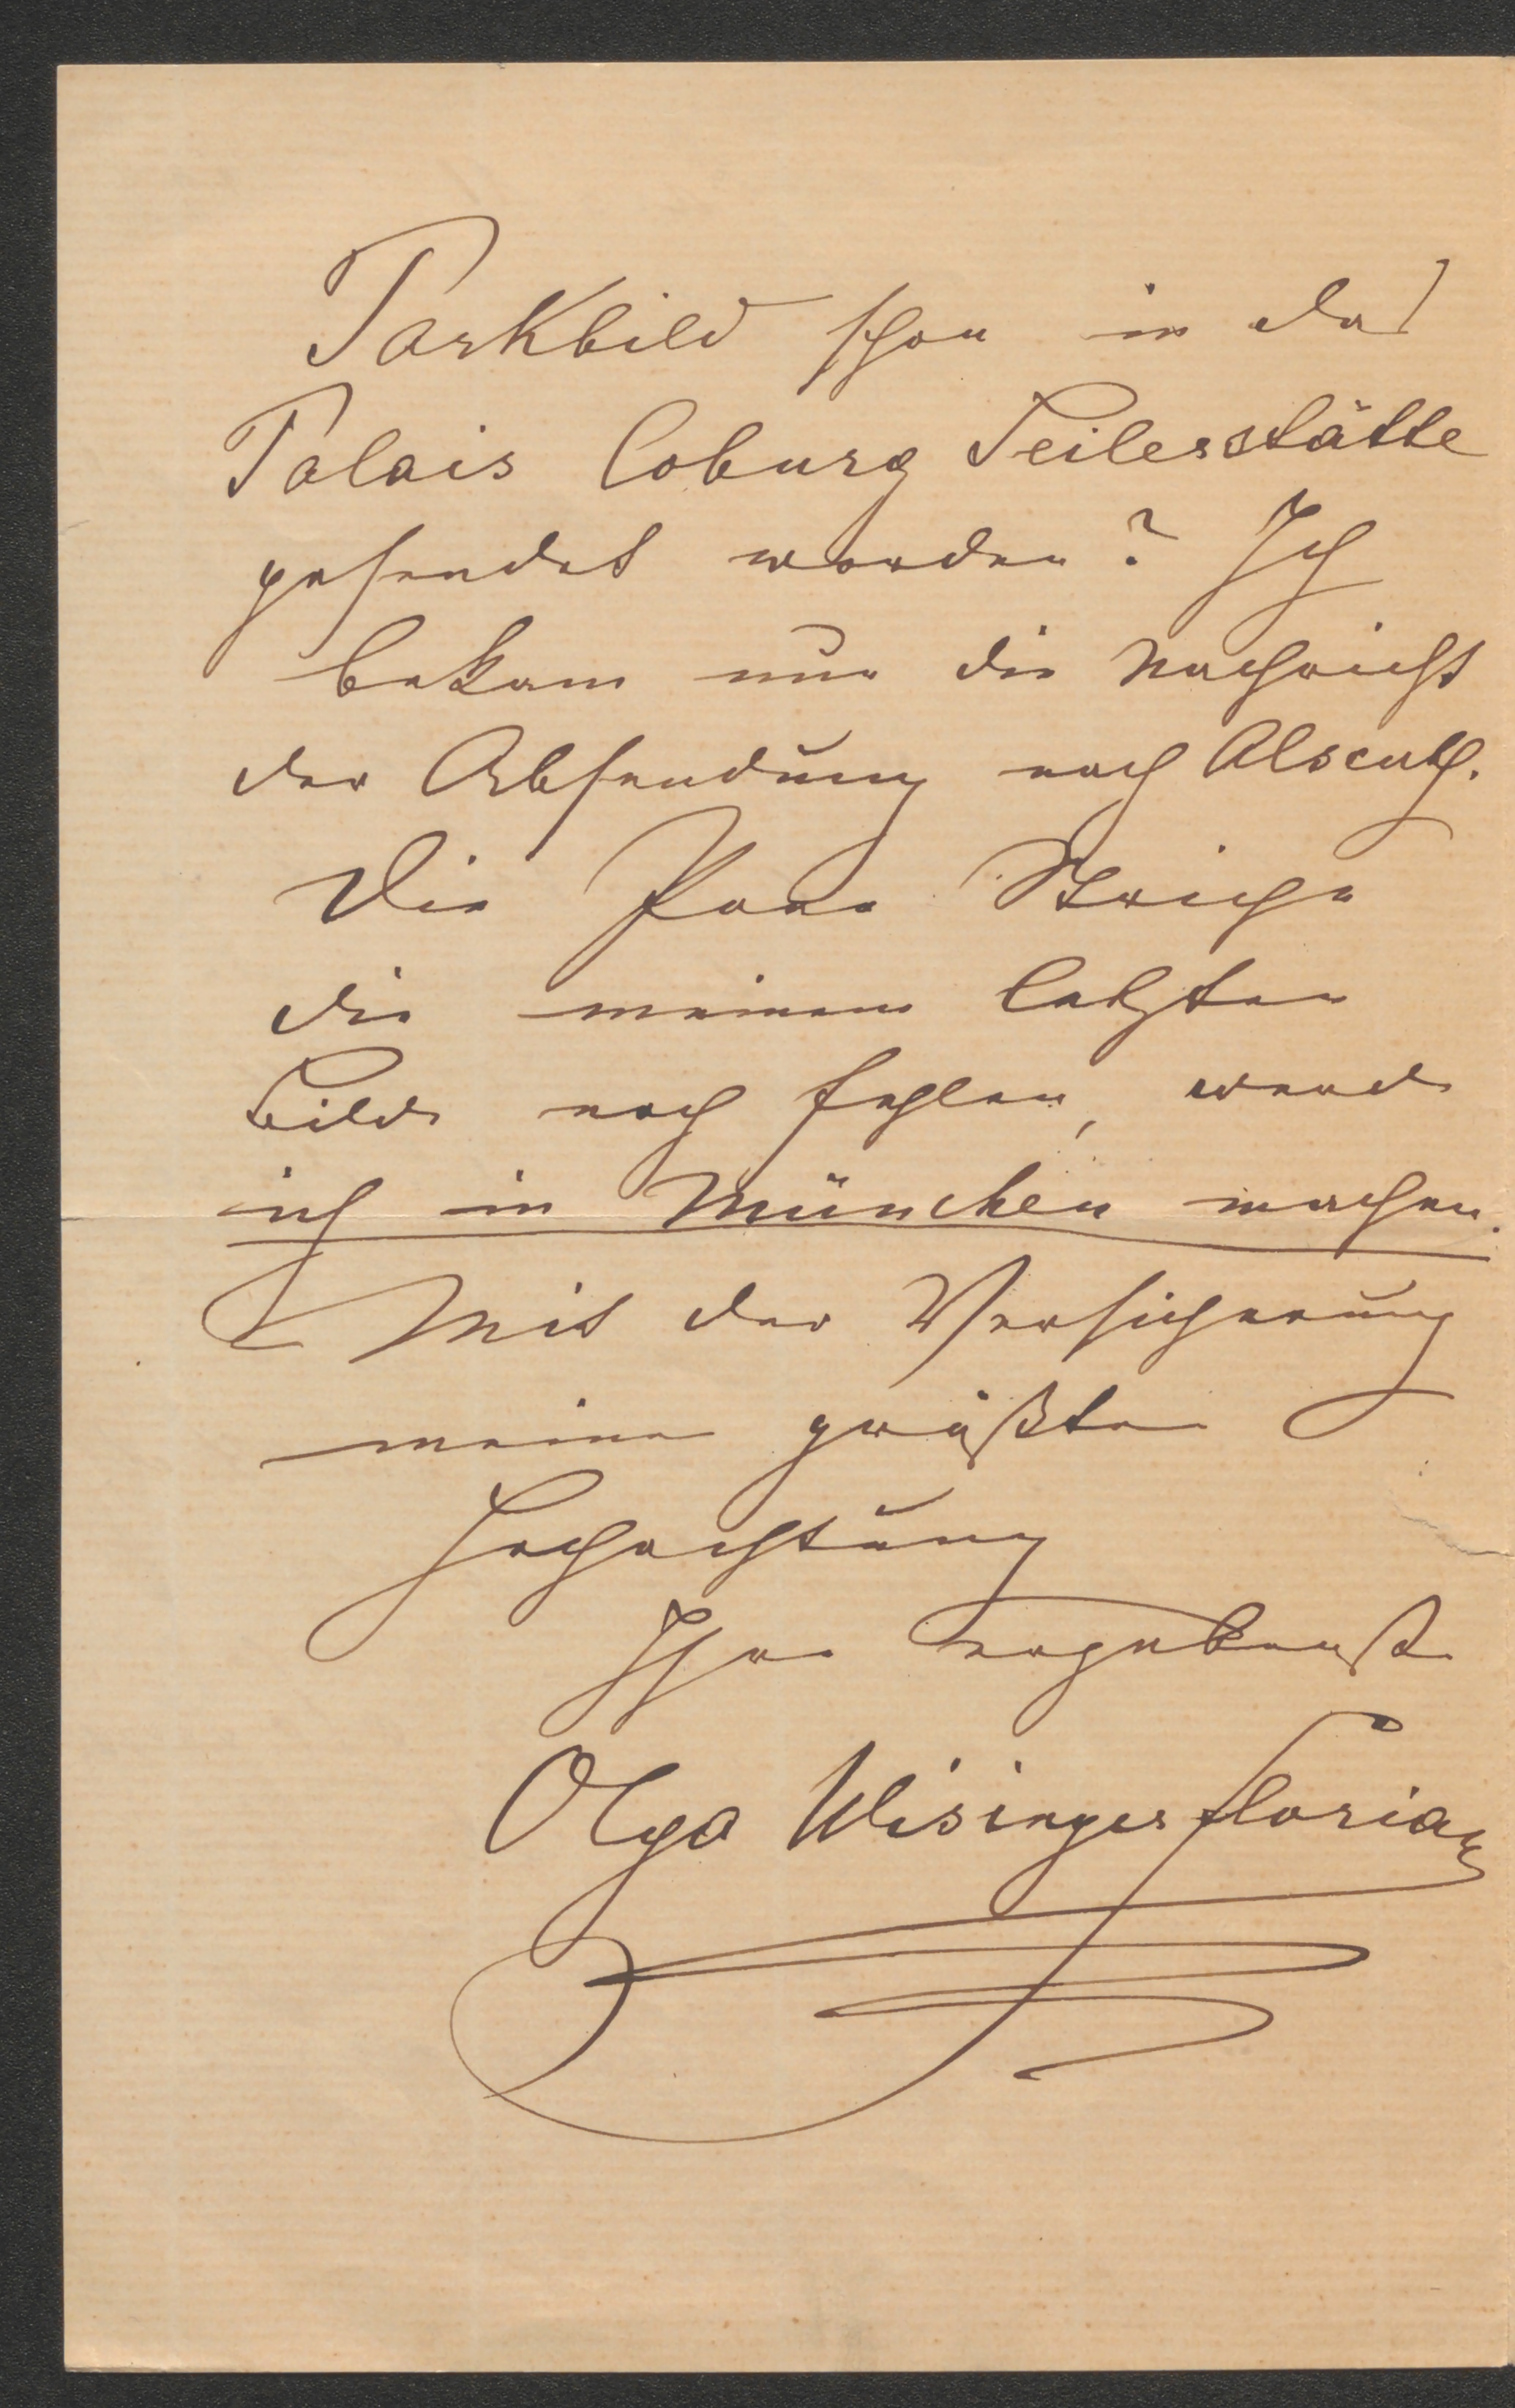 Parkbild schon in das
Palais Coburg Seilerstätte
gesendet worden? Ich
bekam nur die Nachricht
der Absendung nach Alscuth.
Die paar Striche
die meinem letzten
Bilde noch fehlen, werde
ich in München machen.
Mit der Versicherung
meiner größten
Hochachtung
Ihre ergebenste
Olga Wisinger Florian